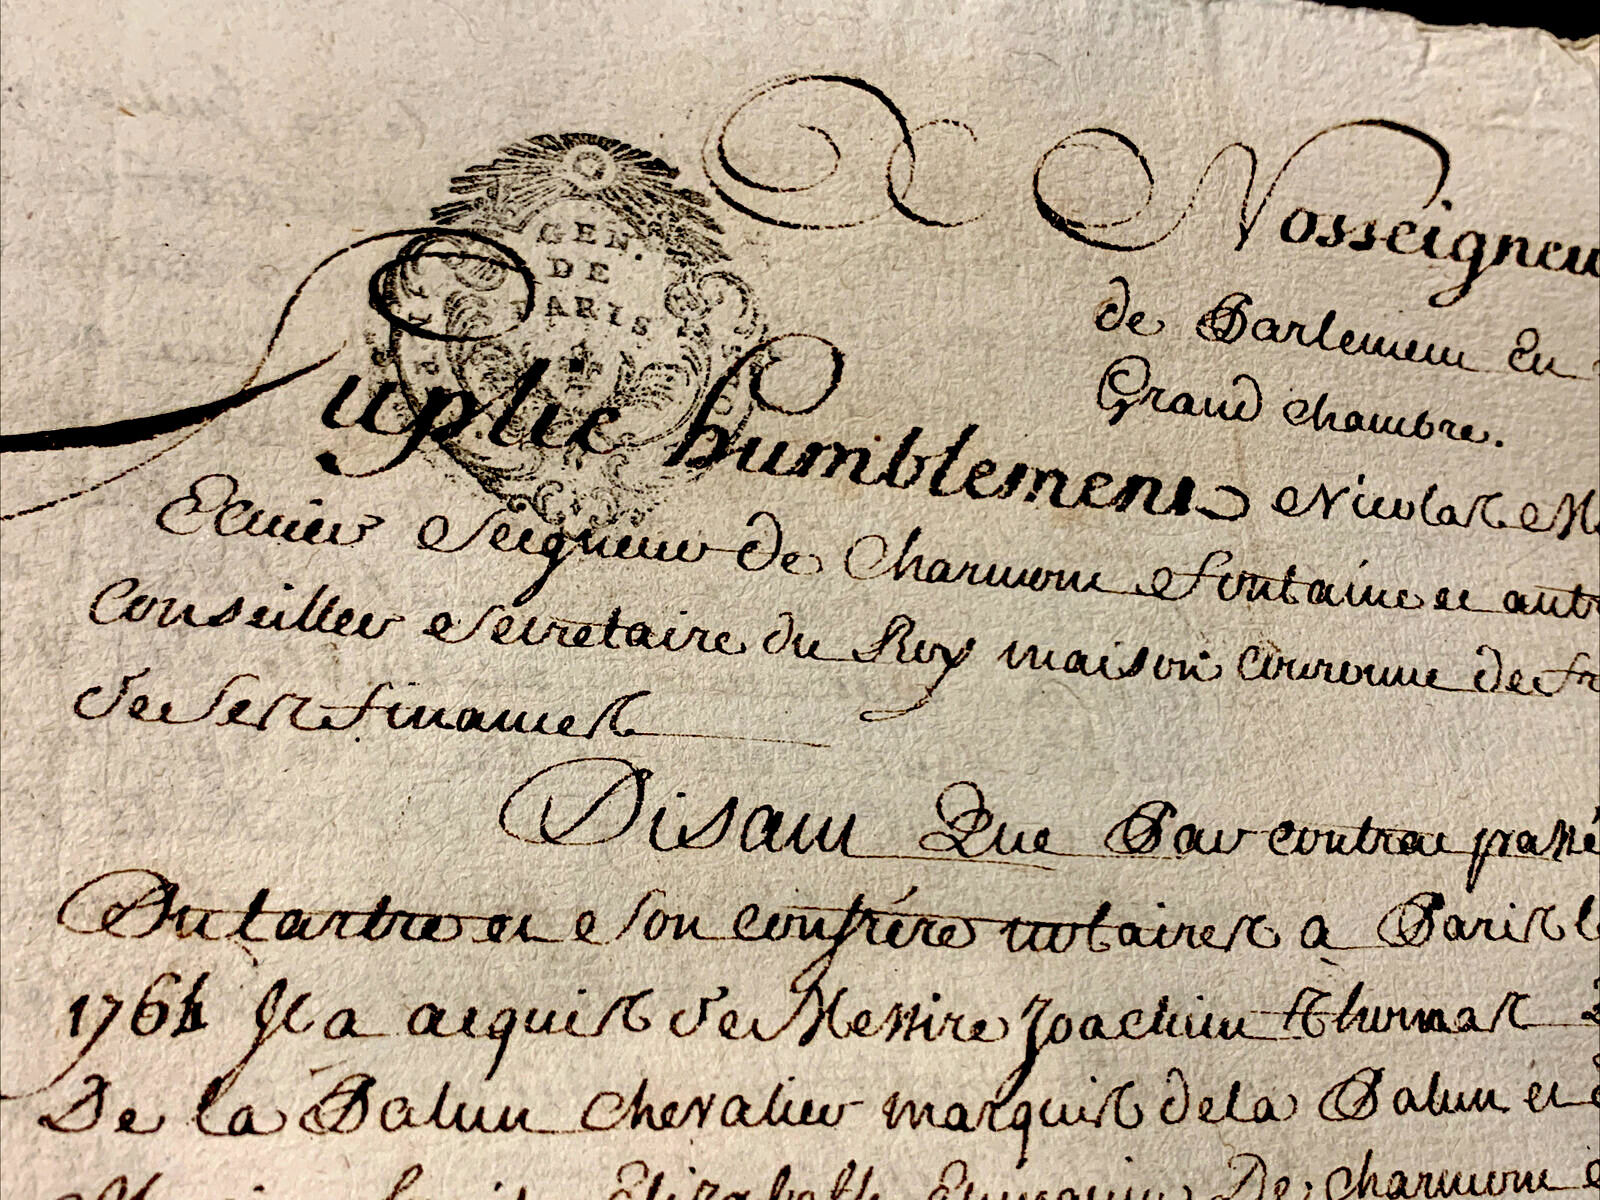 GEN.
DE
PARIS
A Nosseigneu
de Parlement En
Grand chambre.
Suplie humblement Nicolas
Ecuier Seigneur de Charmont fontaine et autr
Conseiller Secretaire du Roy maison couronne de fr
de Ses finances
Disant Que Par contrat passé
Dutartre et Son confrère notaires a Paris l
1764 Il a acquis de Messire Joachim Thomas
De la Palun chevalier marquis de la Palun et
Elizabeth De charmont